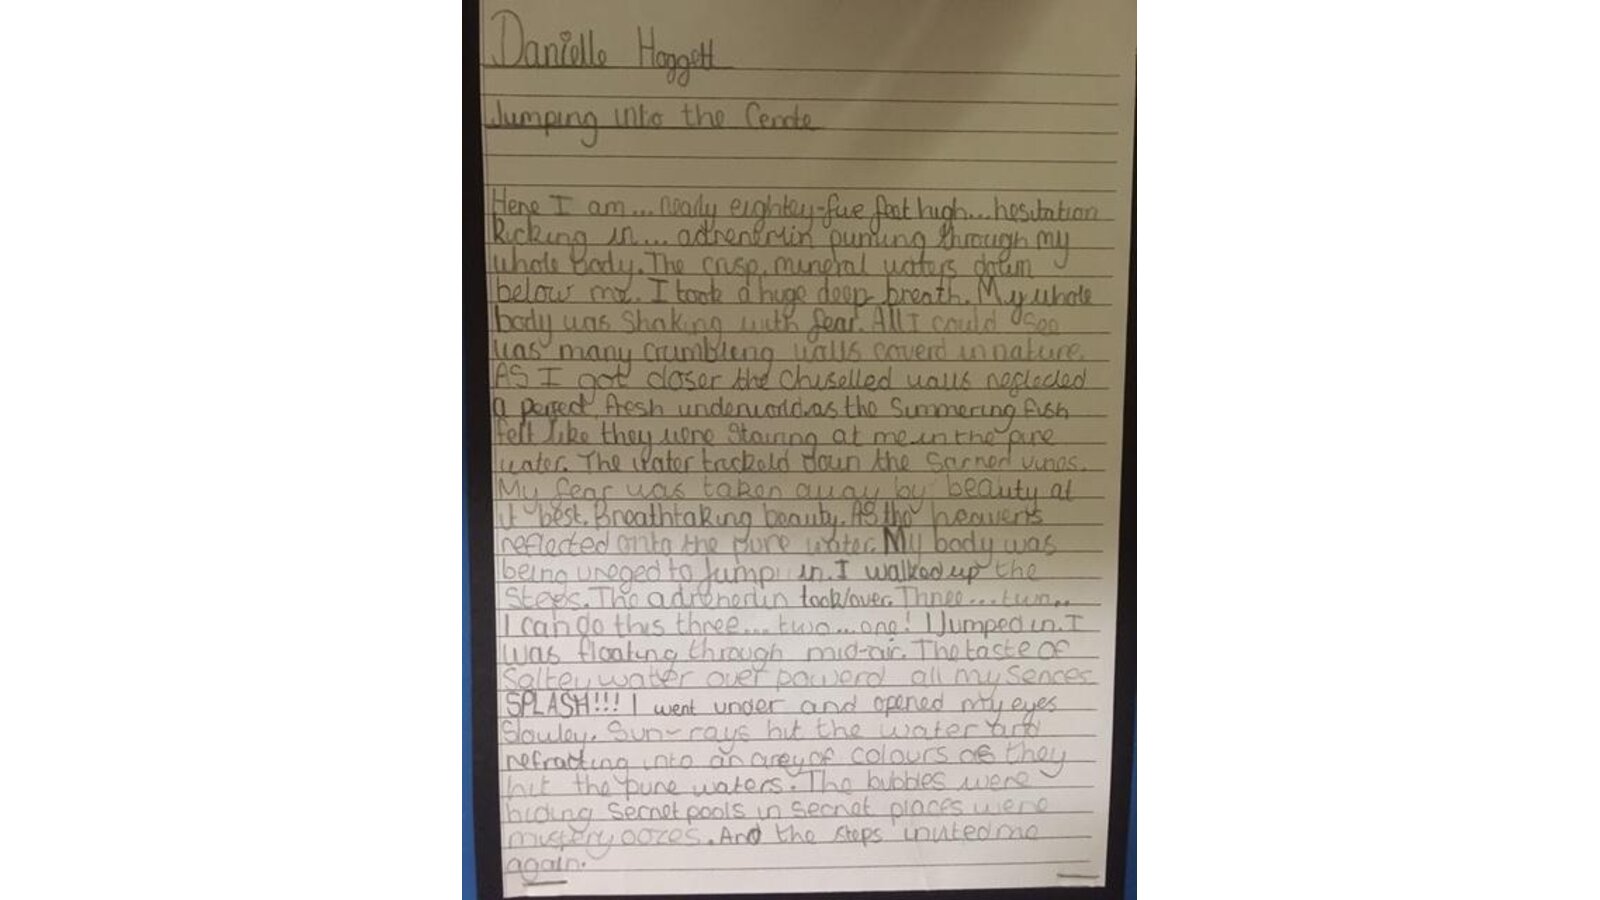 Danielle Hoggett
Jumping into the Cenote
Here I am... nearly eightey-five feet high... hesitation
kicking in... adrenerlin pumting through my
whole body. The crisp, mineral waters down
below me. I took a huge deep breath. My whole
body was shaking with fear. All I could see
was many crumbleing walls coverd in nature.
As I got closer the chiselled walls neglected
a perfect, fresh underworld.as the summering fish
felt like they were staring at me in the pure
water. The water trickeld down the sacred vines.
My fear was taken away by beauty at
it best. Breathtaking beauty. As the heavens
reflected onto the pure water. My body was
being ureged to jump in. I walked up the
steps. The adrenerlin took over. Three.... two...
I can do this three.... two... one! I jumped in. I
was floating through mid-air. The taste of
saltey water over powerd all my sences
SPLASH!!! I went under and opened my eyes
slowley. Sun-rays hit the water and
refracting into an arey of colours as they
hit the pure waters. The bubbles were
hiding secret pools in secret places were
mistery oozes. And the steps invited me
again.